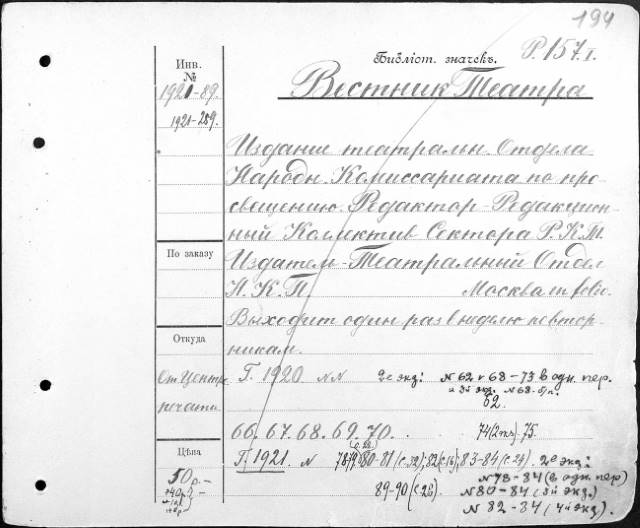 194
Библіот. значекъ. Р. 157.I.
Вестник Театра
Инв.
№
1921-89.
1921-259.
Издание театральн. Отдела
Народн. Комиссариата по про-
свещению. Редактор - Редакцион-
ный Коллектив Сектора Р.К.М.
По заказу
Издатель - Театральный Отдел
Н. К. П. Москва in folio.
Выходит один раз в неделю по втор-
никам.
Откуда
От Центр.
печати
Г. 1920 NN 2е экз: N 62 и 68-73 в одн. пер.
и 3й экз. N 68-
62.
66. 67. 68. 69. 70. 74 75.
Цѣна
50 р.-
Г. 1921. N 78-79 80-81 (с. 32); 82 (с. 16); 83-84 (с. 24) 2е экз:
N 78-84 (в одн. пер)
89-90 N 80-84 (3й экз.)
N 82-84 (4й экз.)